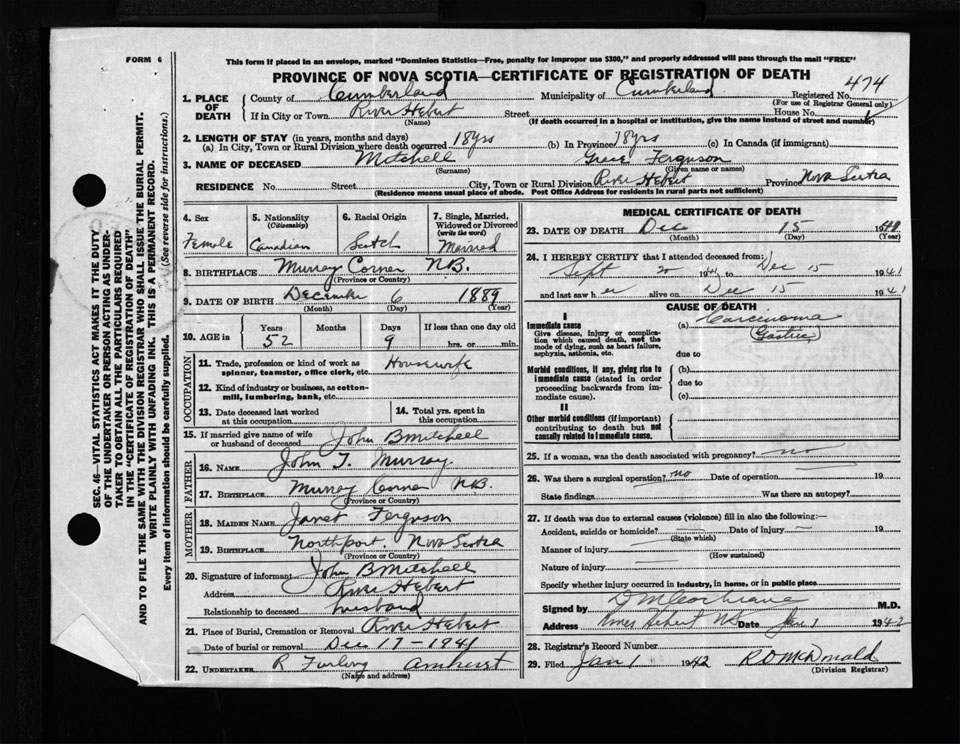 FORM 6
This form if placed in an envelope, marked "Dominion Statistics—Free, penalty for improper use $300," and properly addressed will pass through the mail "FREE"
PROVINCE OF NOVA SCOTIA—CERTIFICATE OF REGISTRATION OF DEATH
SEC. 46—VITAL STATISTICS ACT MAKES IT THE DUTY
OF THE UNDERTAKER OR PERSON ACTING AS UNDER-
TAKER TO OBTAIN ALL THE PARTICULARS REQUIRED
IN THE "CERTIFICATE OF REGISTRATION OF DEATH"
AND TO FILE THE SAME WITH THE DIVISION REGISTRAR WHO SHALL ISSUE THE BURIAL PERMIT.
WRITE PLAINLY WITH UNFADING INK. THIS IS A PERMANENT RECORD.
Every item of information should be carefully supplied. (See reverse side for instructions.)
1. PLACE OF DEATH County of Cumberland Municipality of Cumberland Registered No. 474
(For use of Registrar General only)
If in City or Town River Hebert Street House No.
(Name) (If death occurred in a hospital or institution, give the name instead of street and number)
2. LENGTH OF STAY (in years, months and days)
(a) In City, Town or Rural Division where death occurred 18yrs (b) In Province 78yrs (c) In Canada (if immigrant)
3. NAME OF DECEASED Mitchell Grace Ferguson
(Surname) (Given name or names)
RESIDENCE No. Street City, Town or Rural Division River Hebert Province Nova Scotia
(Residence means usual place of abode. Post Office Address for Residents in rural parts not sufficient)
4. Sex 5. Nationality (Citizenship) 6. Racial Origin 7. Single, Married, Widowed or Divorced (write the word)
Female Canadian Scotch Married
8. BIRTHPLACE Murray Corner NB.
(Province or Country)
9. DATE OF BIRTH December 6 1889
(Month) (Day) (Year)
10. AGE in Years Months Days If less than one day old
52 9 hrs. or min.
OCCUPATION
11. Trade, profession or kind of work as spinner, teamster, office clerk, etc. Housewife
12. Kind of industry or business, as cotton-mill, lumbering, bank, etc.
13. Date deceased last worked at this occupation
14. Total yrs. spent in this occupation
15. If married give name of wife or husband of deceased John B Mitchell
FATHER
16. NAME John T. Murray.
17. BIRTHPLACE Murray Corner NB.
(Province or Country)
MOTHER
18. MAIDEN NAME Janet Ferguson
19. BIRTHPLACE Northport. Nova Scotia
(Province or Country)
20. Signature of informant John B Mitchell
Address River Hebert
Relationship to deceased husband
21. Place of Burial, Cremation or Removal River Hebert
Date of burial or removal Dec 17 - 1941
22. UNDERTAKER R Furlong Amherst
(Name and address)
MEDICAL CERTIFICATE OF DEATH
23. DATE OF DEATH Dec 15 1941
(Month) (Day) (Year)
24. I HEREBY CERTIFY that I attended deceased from:
Sept 20 1941 to Dec 15 1941
and last saw her alive on Dec 15 1941
CAUSE OF DEATH
I
Immediate cause (a) Carcinoma
(Gastric)
Give disease, injury or complication which caused death, not the mode of dying, such as heart failure, asphyxia, asthenia, etc.
due to
Morbid conditions, if any, giving rise to immediate cause (stated in order proceeding backwards from immediate cause).
(b)
due to
(c)
II
Other morbid conditions (if important) contributing to death but not causally related to immediate cause.
25. If a woman, was the death associated with pregnancy? no
26. Was there a surgical operation? no Date of operation 19
State findings Was there an autopsy?
27. If death was due to external causes (violence) fill in also the following:—
Accident, suicide or homicide? Date of injury 19
(State which)
Manner of injury
(How sustained)
Nature of injury
Specify whether injury occurred in industry, in home, or in public place
Signed by D M Cochrane M.D.
Address River Hebert NS Date Jan 1 1942
28. Registrar's Record Number
29. Filed Jan 1 1942 R D McDonald
(Division Registrar)